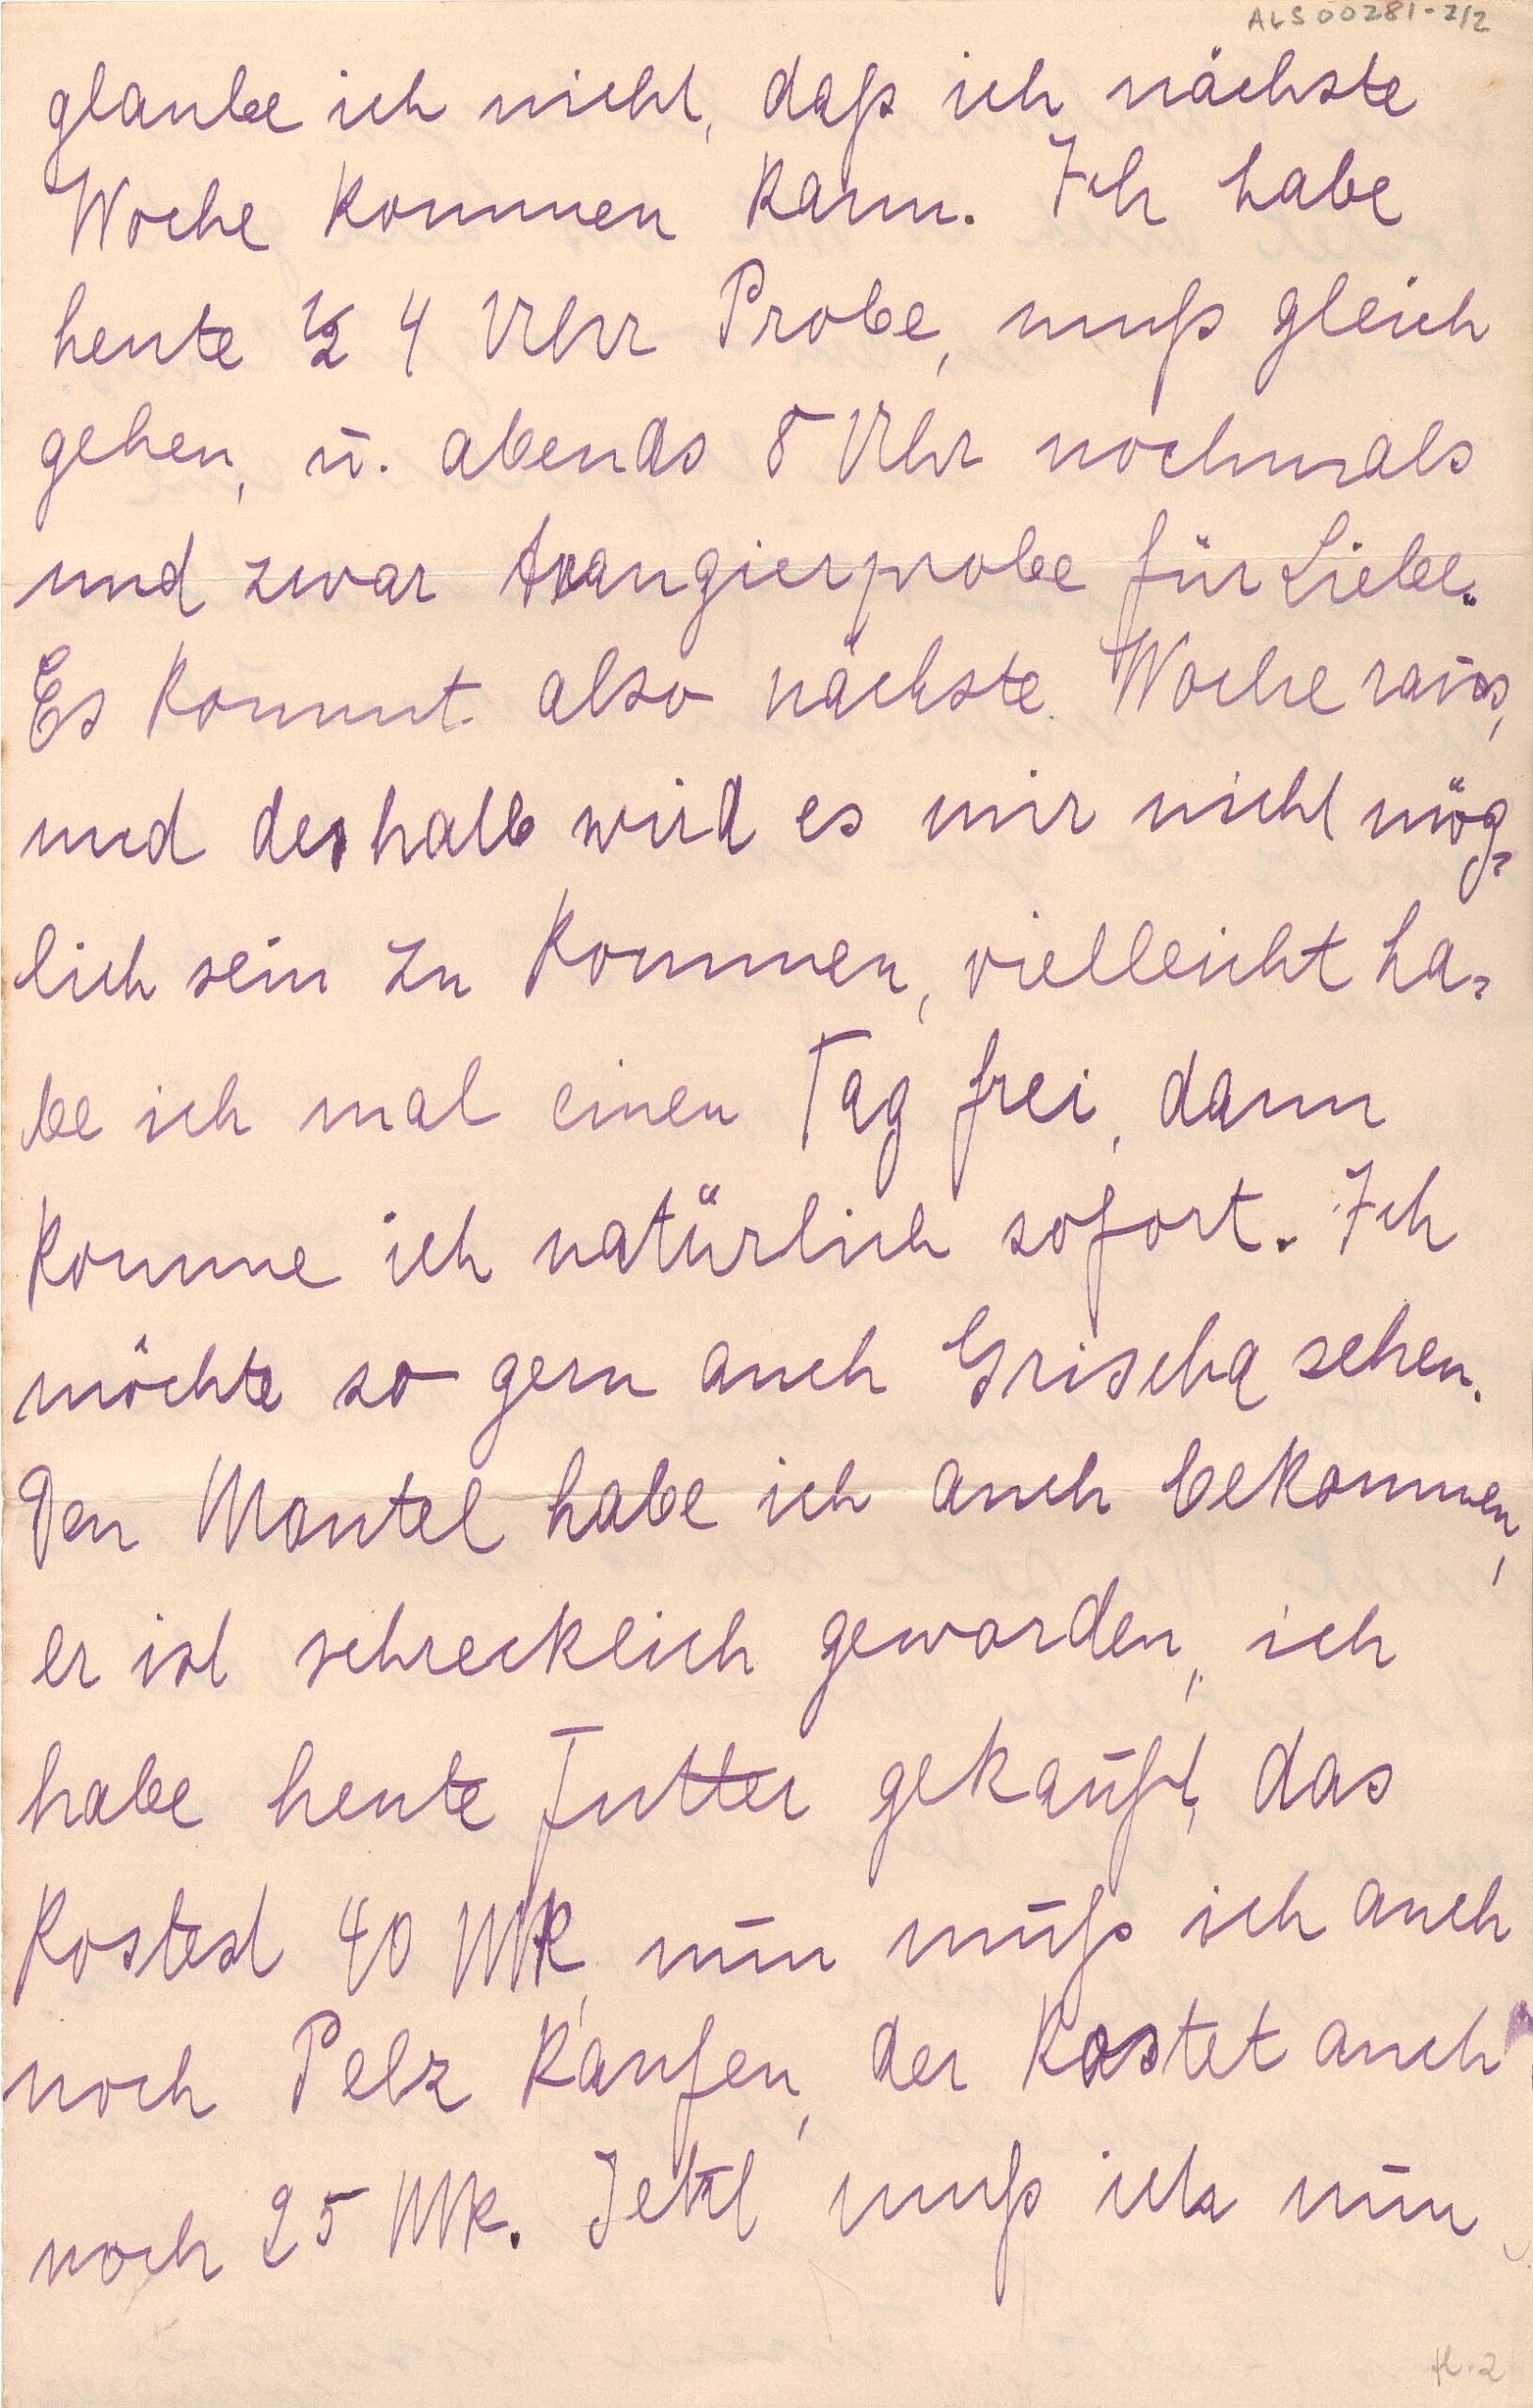 ALS 00281-2/2
glaube ich nicht, daß ich nächste
Woche kommen kann. Ich habe
heute ½ 4 Uhr Probe, muß gleich
gehen, u. abends 8 Uhr nochmals
und zwar Arangierprobe für Liebe.
Es kommt also nächste Woche raus,
und deshalb wird es mir nicht mög-
lich sein zu kommen, vielleicht ha-
be ich mal einen Tag frei, dann
komme ich natürlich sofort. Ich
möchte so gern auch Grischa sehen.
Den Mantel habe ich auch bekommen,
er ist schrecklich geworden, ich
habe heute Futter gekauft, das
kostest 40 Mk, nun muß ich auch
noch Pelz kaufen, der kostet auch
noch 25 Mk. Jetzt muß ich nun